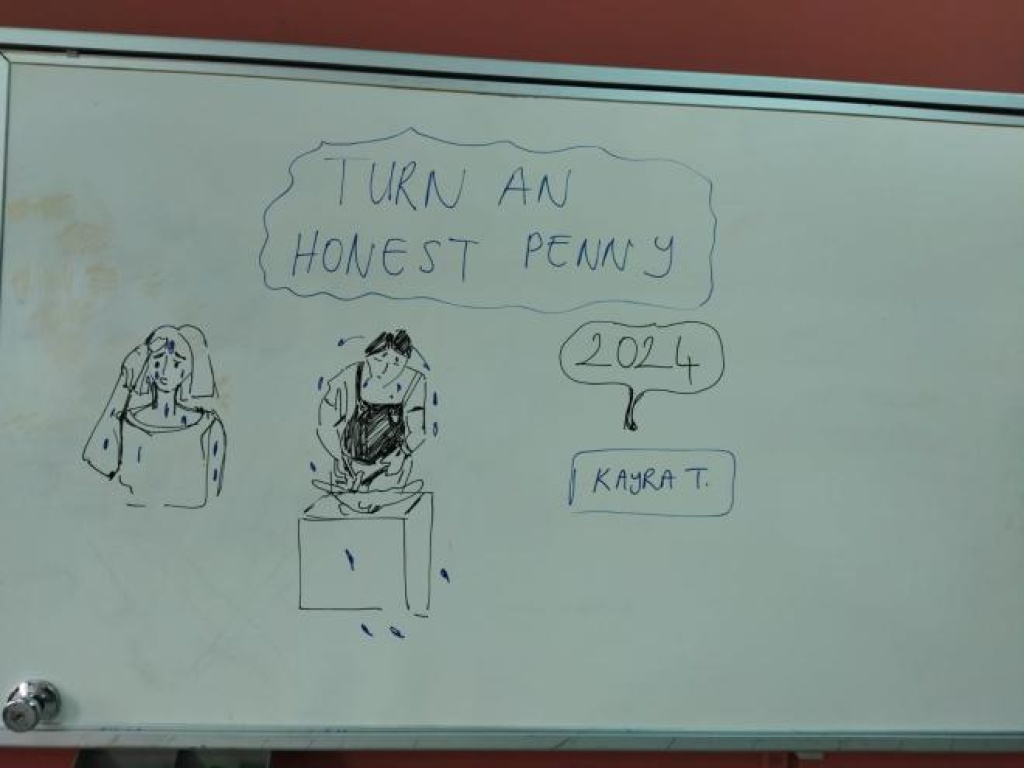 TURN AN
HONEST PENNY
2024
KAYRA T.